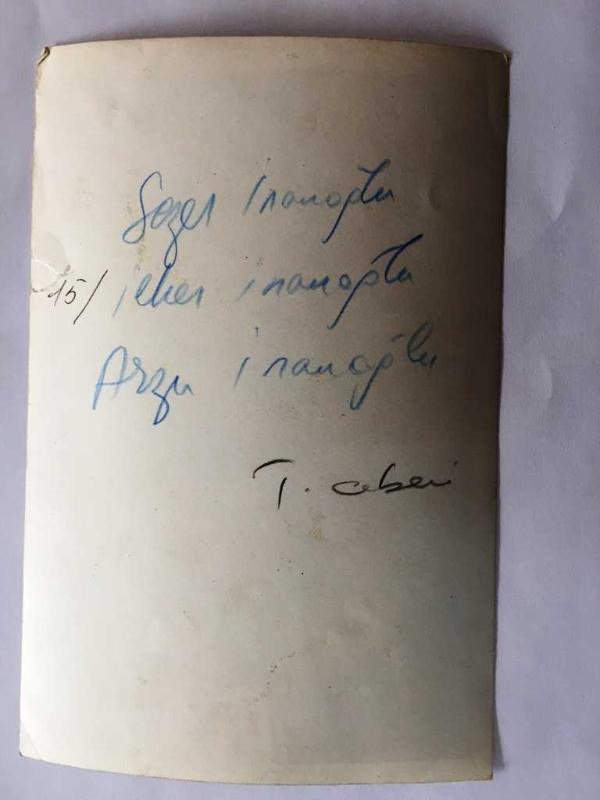 Sezer İnanoğlu
15/ ilker inanoğlu
Arzu inanoğlu
T.